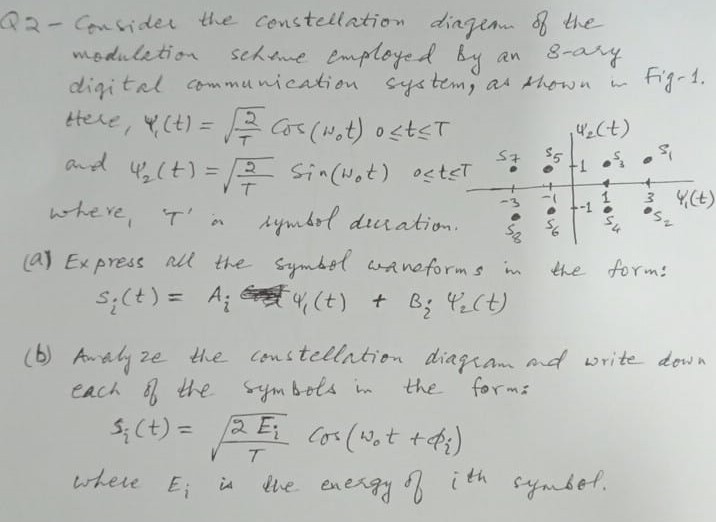 Q2- Consider the constellation diagram of the
modulation scheme employed by an 8-ary
digital communication system, as shown in Fig-1.
Here, Ψ₁(t) = √(2/T) Cos(ω₀t) 0≤t≤T
and Ψ₂(t) = √(2/T) Sin(ω₀t) 0≤t≤T
where, 'T' is symbol duration.
Ψ₂(t)
S7 S5 1 S3 S1
-3 -1 1 3 Ψ₁(t)
-1
S8 S6 S4 S2
(a) Express all the symbol waveforms in the form:
Sᵢ(t) = Aᵢ Ψ₁(t) + Bᵢ Ψ₂(t)
(b) Analyze the constellation diagram and write down
each of the symbols in the form:
Sᵢ(t) = √(2Eᵢ/T) Cos(ω₀t + ϕᵢ)
where Eᵢ is the energy of ith symbol.